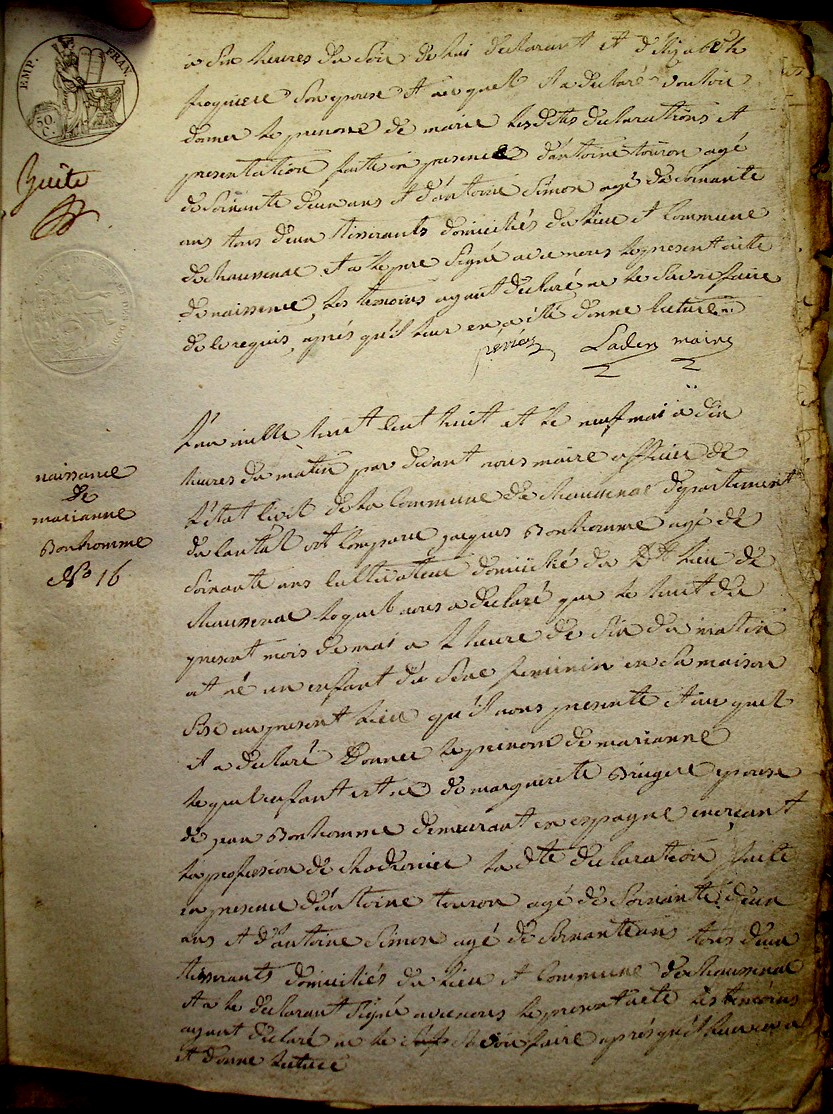 EMP. FRAN.
50.
C.
Zuite
à Six heures du Soir de lui déclarant et d'Elizabeth
Son epouse et auquel il a déclaré vouloir
donner le prenom de marie les dittes declarations et
presentation faite en presence d'antoine touron agé
de Soixante deux ans et d'antoine Simon agé de Soixante
ans tous deux tisserants domiciliés du lieu et Commune
de chaussenac et a le pere Signé avec nous le present acte
de naissance, les temoins ayant declaré ne le Savoir faire
de ce requis, après qu'il leur en a été donné lecture
périer Laden maire
naissance
de
marianne
Bonhomme
No 16
L'an mille huit Cent huit et le neuf mai à dix
heures du matin par devant nous maire officier de
L'état Civil de la Commune de chaussenac departement
du Cantal est Comparu jacques Bonhomme agé de
Soixante ans Cultivateur domicilié du Dt lieu de
chaussenac lequel nous a declaré que le huit du
present mois de mai a l'heure de Six du matin
est né un enfant du Sexe feminin en Sa maison
Sise au present lieu qu'il nous presente et auquel
il a declaré Donner le prenom de marianne
lequel enfant est né de marguerite Brugere epouse
de jean Bonhomme demeurant en espagne exercant
la profession de chodronier la dte declaration faite
en presence d'antoine touron agé de Soixante deux
ans et d'antoine Simon agé de Soixante ans tous deux
tisserants domiciliés du lieu et Commune de chaussenac
et a le declarant Signé avec nous le present acte les temoins
ayant declaré ne le Savoir faire après qu'il leur en a
été donné lecture